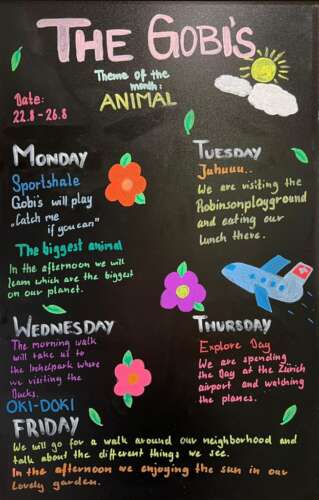 THE GOBI'S
Theme of the
month:
ANIMAL
Date:
22.8 - 26.8
MONDAY
Sportshale
Gobi's will play
„Catch me
if you can"
The biggest animal
In the afternoon we will
learn which are the biggest
on our planet.
TUESDAY
Juhuuu..
We are visiting the
Robinsonplayground
and eating our
lunch there.
WEDNESDAY
The morning walk
will take us to
the
where
we visiting the
Ducks.
OKI-DOKI
THURSDAY
Explore Day
We are spending
the Day at the Zürich
airport and watching
the planes.
FRIDAY
We will go for a walk around our neighborhood and
talk about the different things we see.
In the afternoon we enjoying the sun in our
Lovely garden.